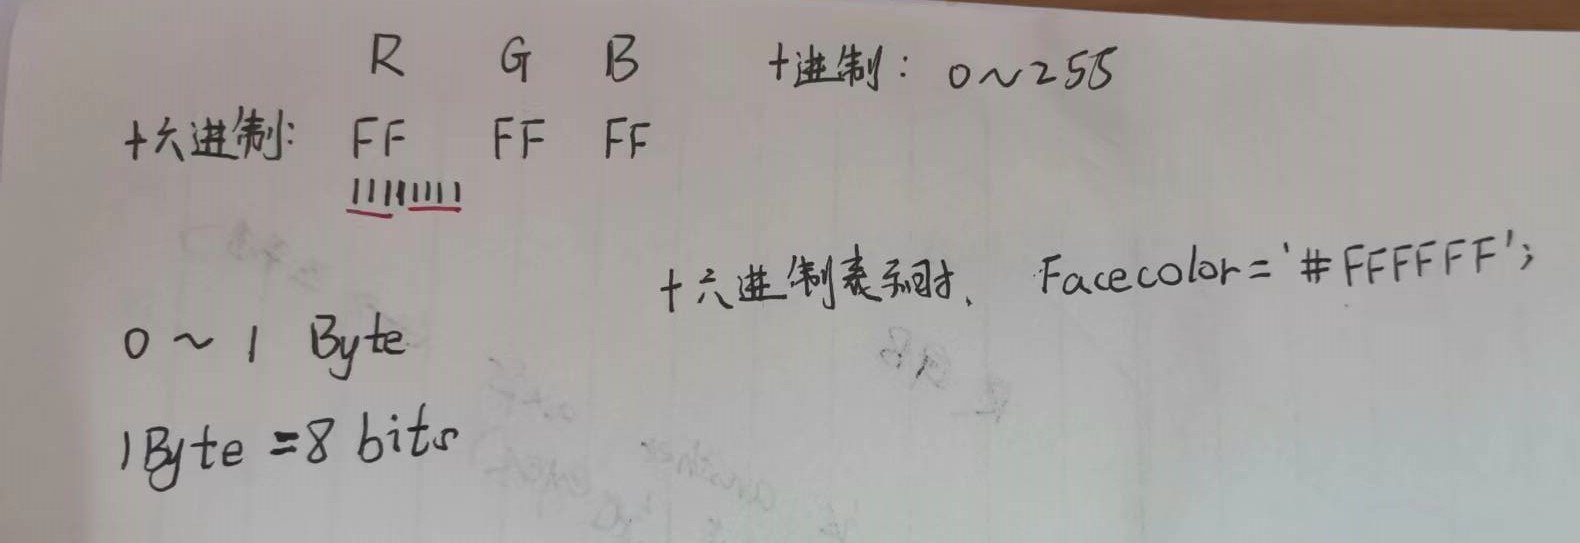 R G B 十进制: 0~255
十六进制: FF FF FF
11111111
十六进制表示时、 Facecolor='#FFFFFF';
0 ~ 1 Byte
1Byte = 8 bits